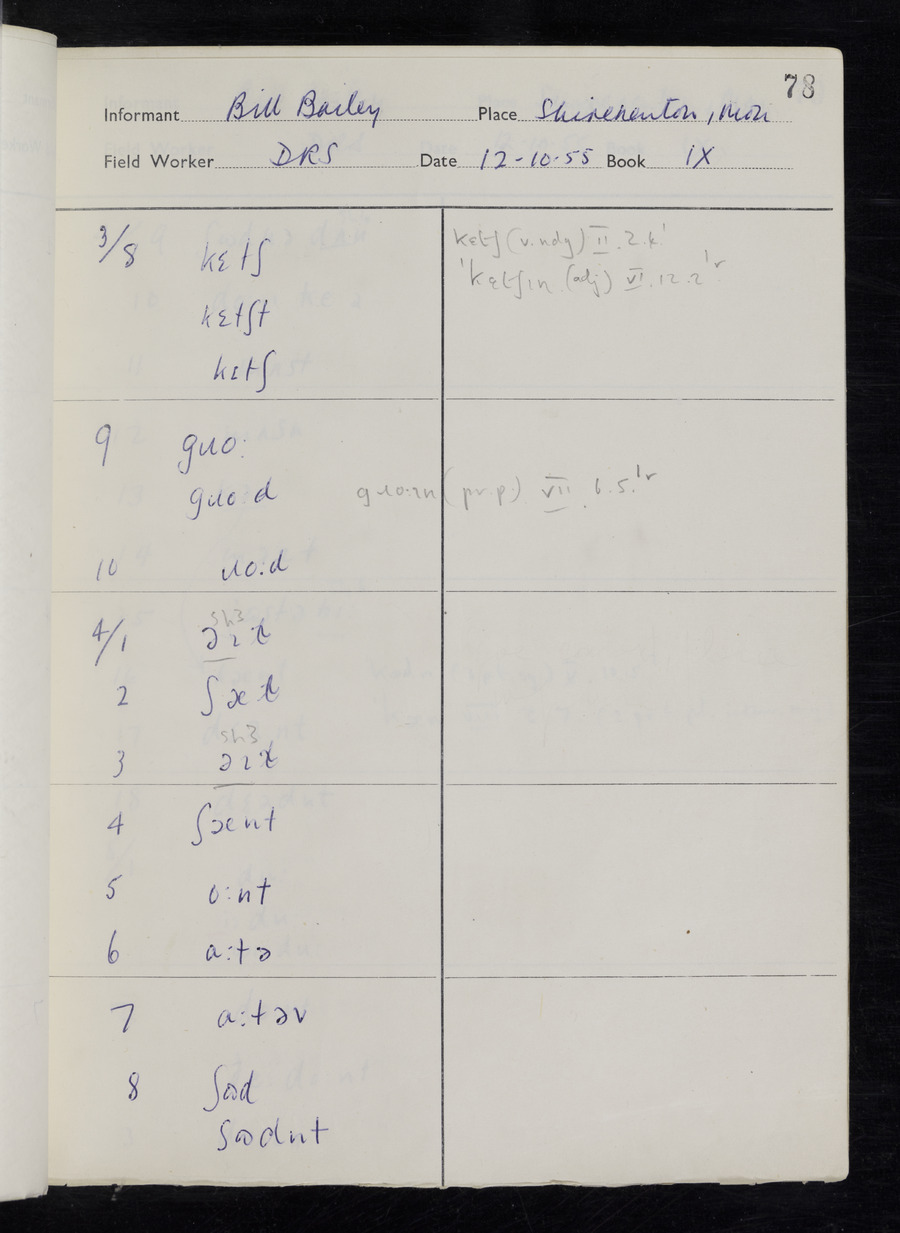 78
Informant Bill Bailey Place Shirenewton, Mon
Field Worker DRS Date 12-10-55 Book IX
3/8 kɛtʃ
kɛtʃ (v. ndg) II. 2.
'kɛtʃɪn (adj) VI. 12. 2
kɛtʃt
kɛtʃ
9 gɹo:
gɹo:d
gɹo:ɪn (pr.p.) VII 6. 5.
10 ɹo:d
sh3
4/1
2 ʃæɫ
sh3
3
4 ʃænt
5 o:nt
6 a:tə
7 a:təv
8 ʃɷd
ʃɷdnt